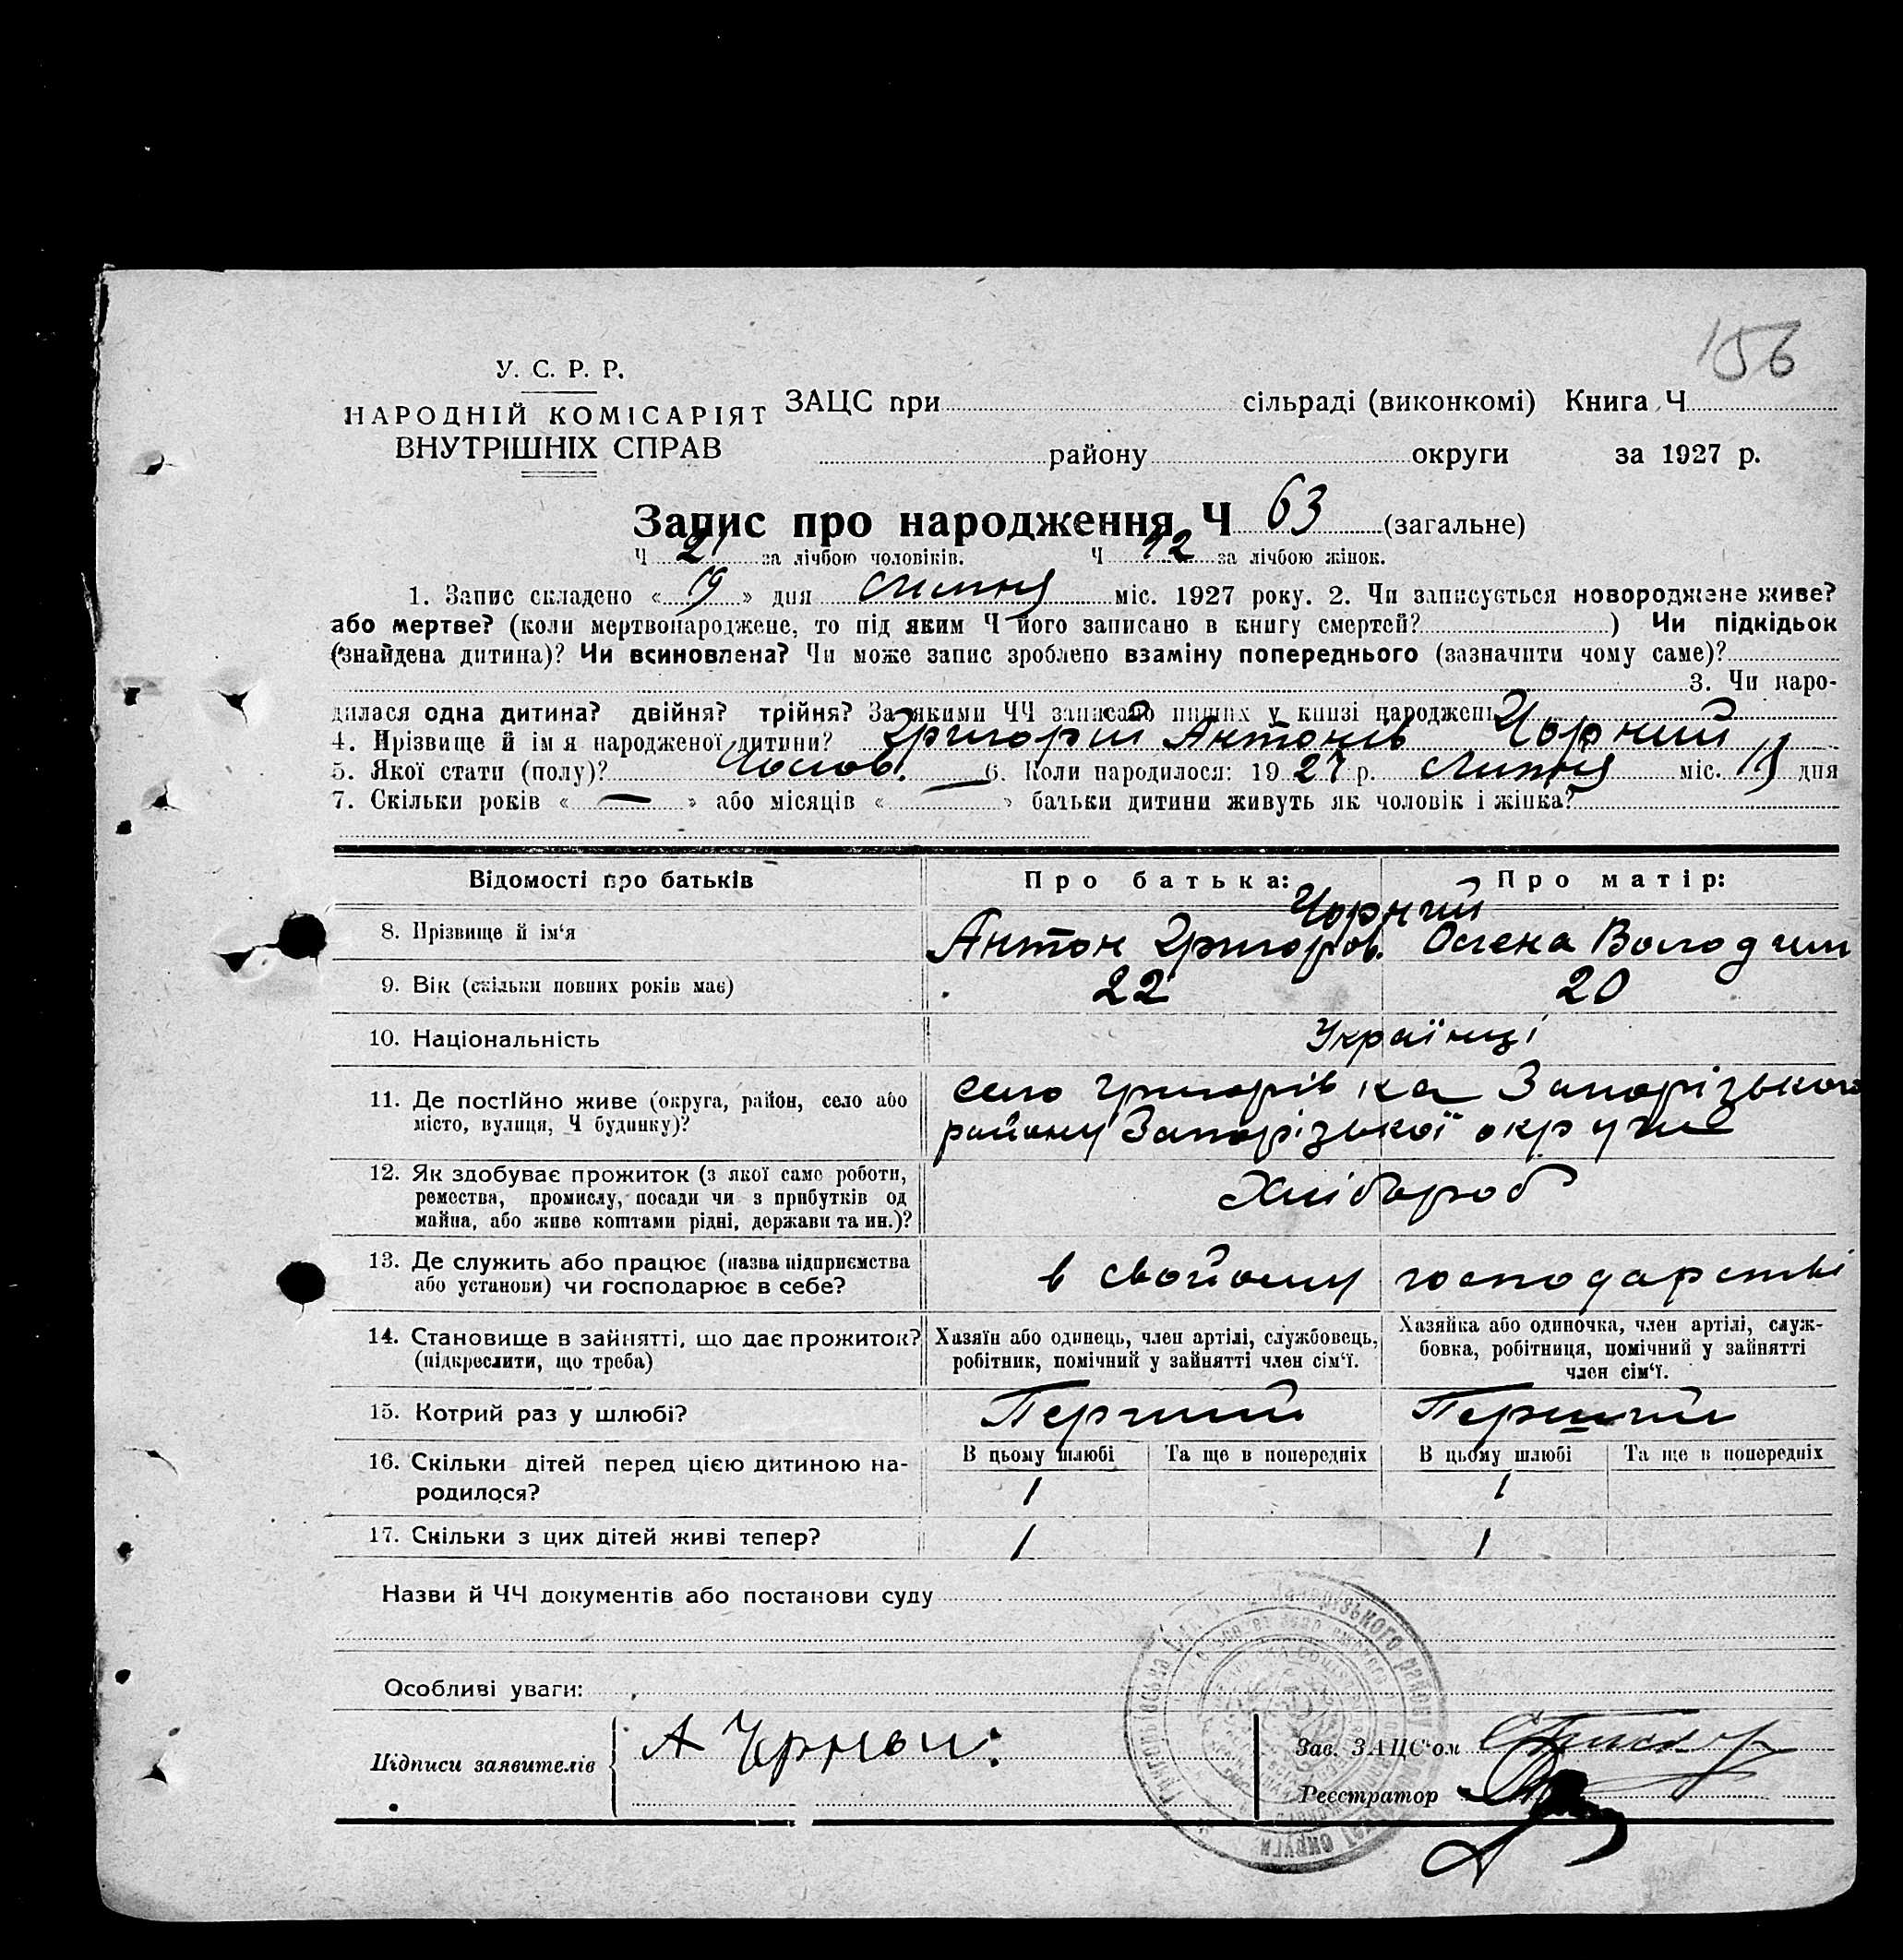 156
У. С. Р. Р.
НАРОДНІЙ КОМІСАРІЯТ
ВНУТРІШНІХ СПРАВ
ЗАЦС при сільраді (виконкомі) Книга Ч.
району округи за 1927 р.
Запис про народження Ч 63 (загальне)
Ч 21 за лічбою чоловіків. Ч 42 за лічбою жінок.
1. Запис складено «19» дня Липня міс. 1927 року. 2. Чи записується новороджене живе?
або мертве? (коли мертвонароджене, то під яким Ч його записано в книгу смертей? ) Чи підкідьок
(знайдена дитина)? Чи всиновлена? Чи може запис зроблено взаміну попереднього (зазначити чому саме)?
3. Чи наро-
дилася одна дитина? двійня? трійня? За якими ЧЧ записано инших у книзі народжень
4. Прізвище й ім я народженої дитини? Григорій Антонів Чорний
5. Якої стати (полу)? Чолов. 6. Коли народилося: 1927 р. Липня міс. 19 дня
7. Скільки років « — » або місяців « — » батьки дитини живуть як чоловік і жінка?
Відомості про батьків Про батька: Про матір:
Чорний
8. Прізвище й ім'я Антон Григоров. Олена Володим
9. Вік (скільки повних років має) 22 20
10. Національність Українці
11. Де постійно живе (округа, район, село або місто, вулиця, Ч будинку)? село Григорівка Запорізького
району Запорізької округи
12. Як здобуває прожиток (з якої саме роботи,
ремества, промислу, посади чи з прибутків од
майна, або живе коштами рідні, держави та ин.)? Хлібороб
13. Де служить або працює (назва підприємства
або установи) чи господарює в себе? в свойому господарстві
14. Становище в зайнятті, що дає прожиток?
(підкреслити, що треба)
Хазяїн або одинець, член артілі, службовець,
робітник, помічний у зайнятті член сім'ї.
Хазяйка або одиночка, член артілі, служ-
бовка, робітниця, помічний у зайнятті
член сім'ї.
15. Котрий раз у шлюбі? Перший Перший
16. Скільки дітей перед цією дитиною на-
родилося?
В цьому шлюбі Та ще в попередніх В цьому шлюбі Та ще в попередніх
1 1
17. Скільки з цих дітей живі тепер? 1 1
Назви й ЧЧ документів або постанови суду
Особливі уваги:
Підписи заявителів А Чрнои
Зав. ЗАЦС'ом
Реєстратор
Запорізького району
округи